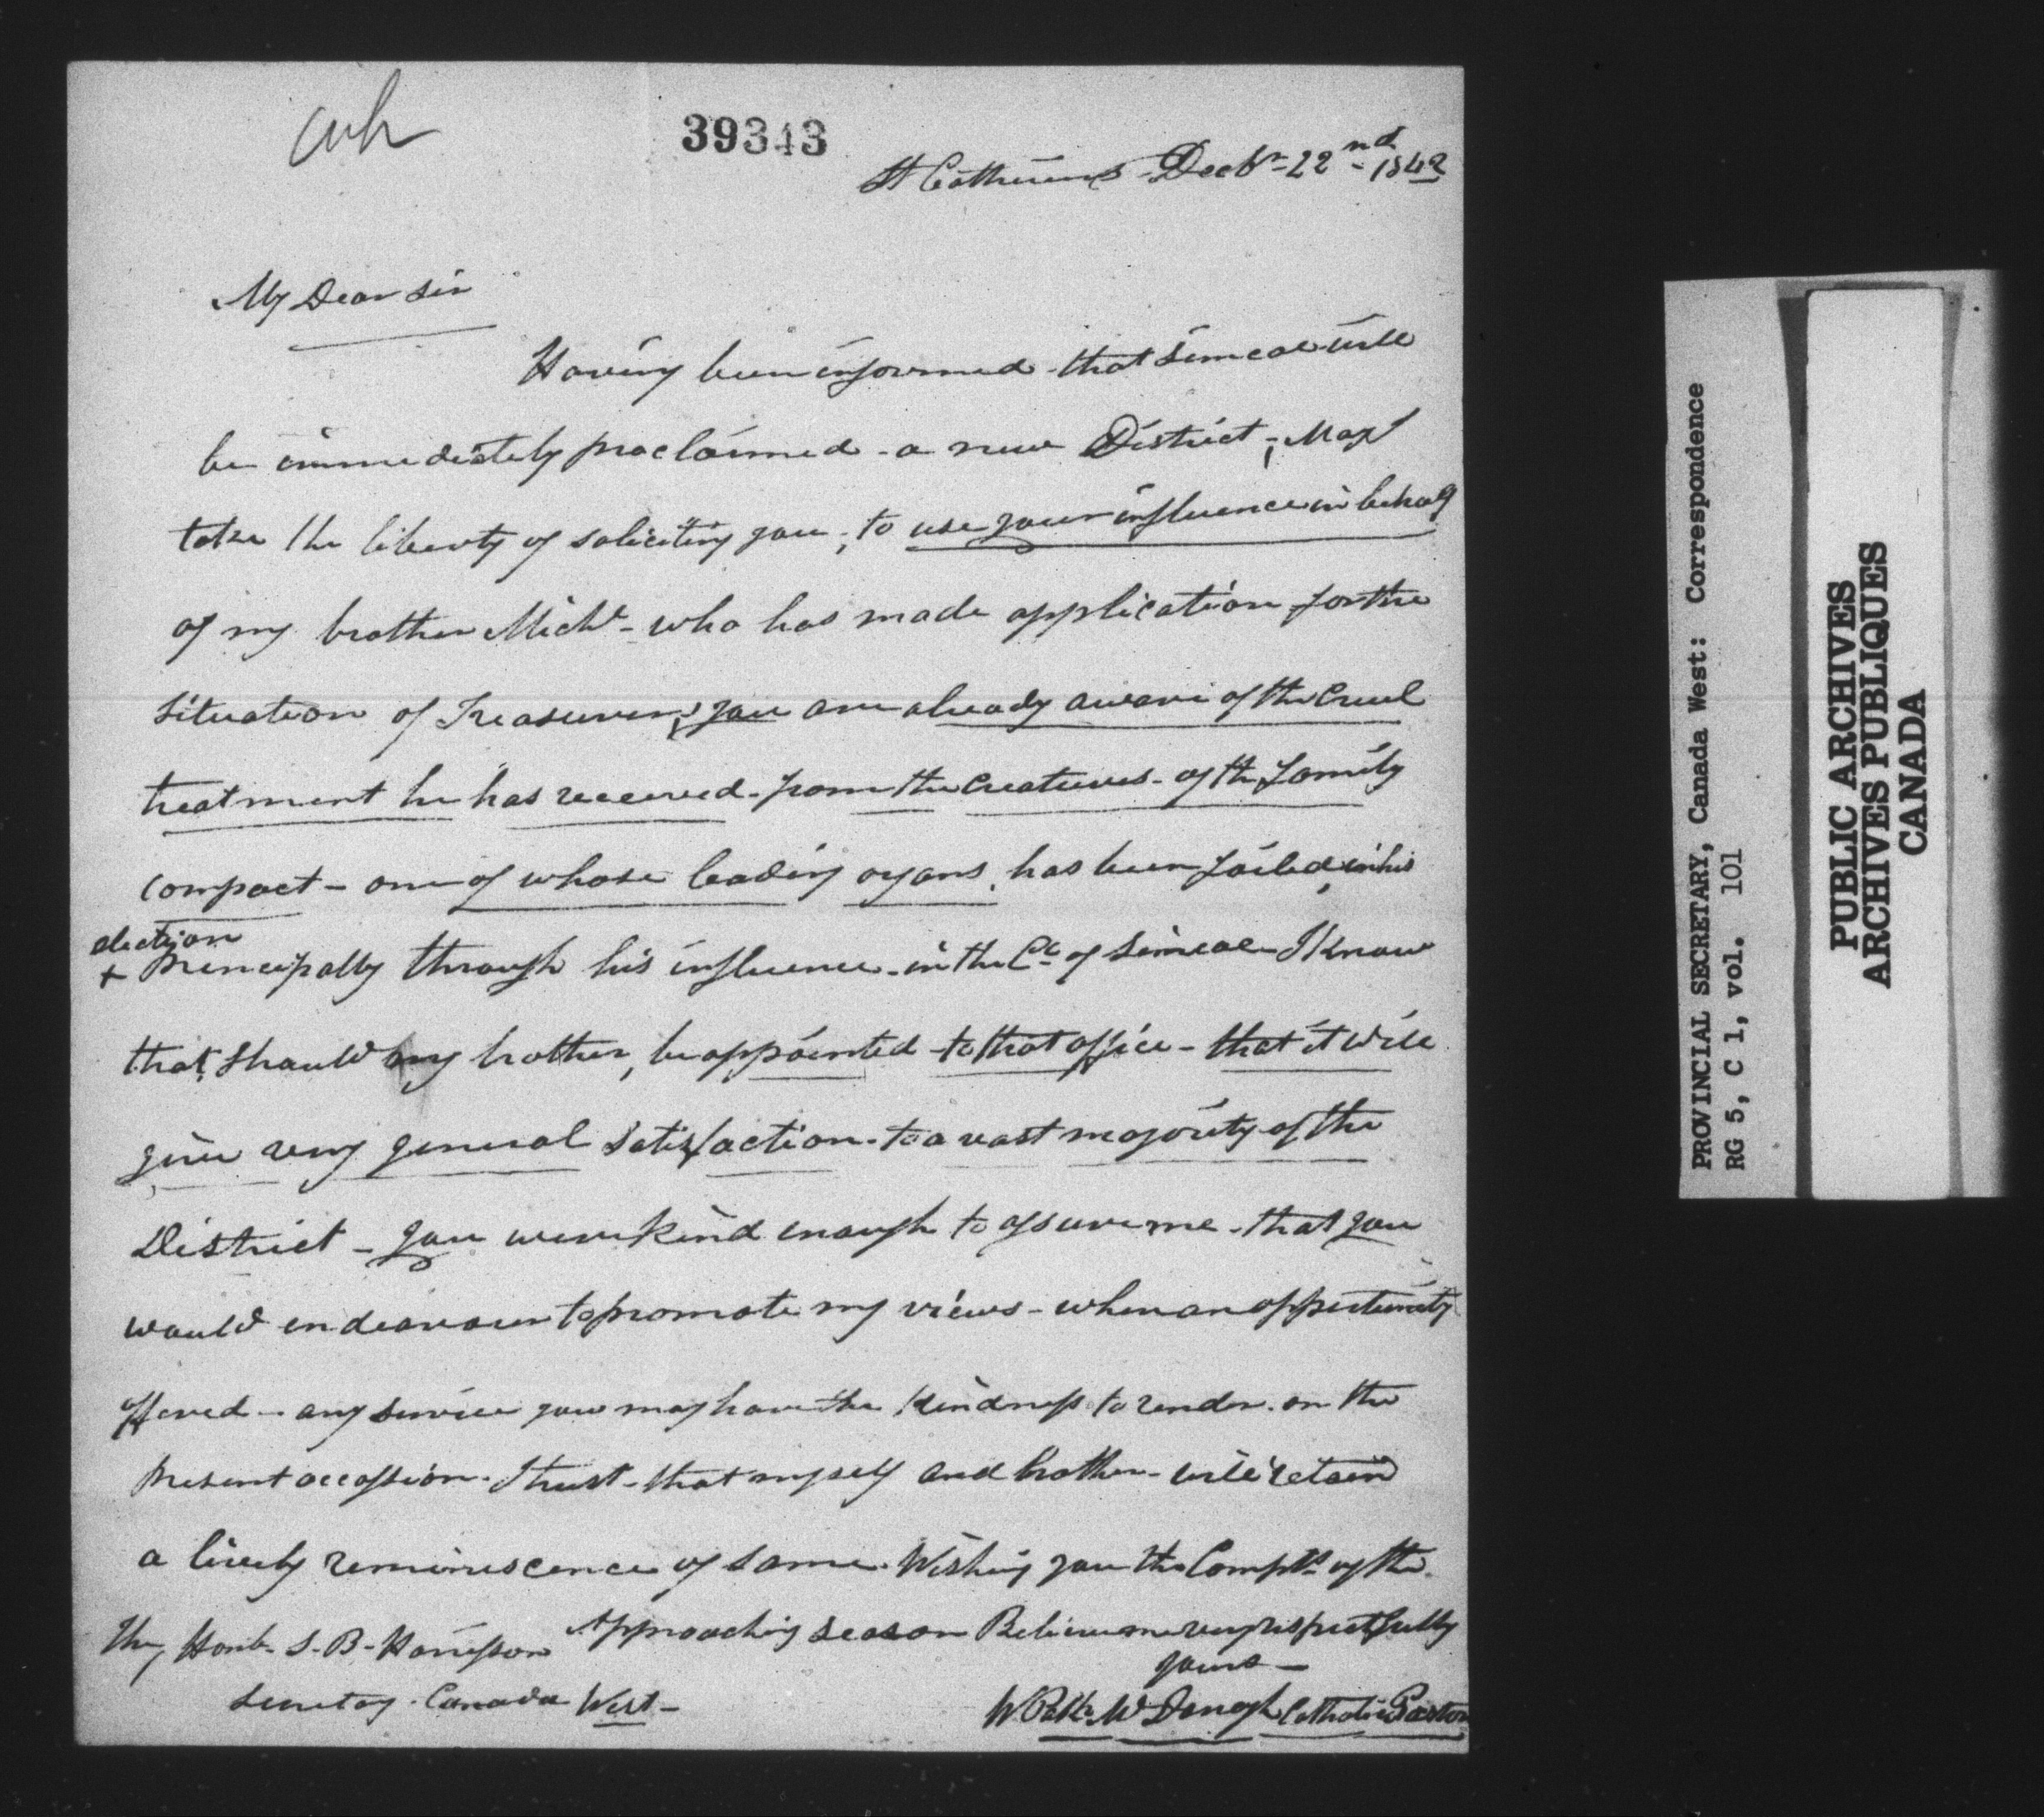 39343
St Catherines Decbr 22nd 1842
My Dear Sir
Having been informed that Simcoe will
be immediately proclaimed a new District; May I
take the liberty of soliciting you, to use your influence in behalf
of my brother Michl - who has made application for the
situation of Treasurer; you are already aware of the cruel
treatment he has received from the creatures of the family
compact - one of whose leading organs, has been foiled in his
election
+ Principally through his influence in the Co of Simcoe I know
that, should my brother, be appointed to that office - that it will
give very general satisfaction to a vast majority of the
District - you were kind enough to assure me that you
would endeavour to promote my views - when an opportunity
offered - any service you may have the kindness to render on the
present occassion I trust that myself and brother will retain
a lively reminiscence of same. Wishing you the Complts of the
approaching season Believe me very respectfully
yours -
The Honb. S. B. Harrisson
Secretary Canada West -
W Patk McDonagh Catholic Pastor
PROVINCIAL SECRETARY, Canada West: Correspondence
RG 5, C 1, vol. 101
PUBLIC ARCHIVES
ARCHIVES PUBLIQUES
CANADA